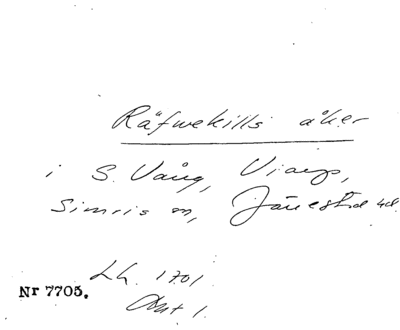 Räfwekills åker
i S. Vång, Viarps,
Simris m, Järrestad hd
Lh. 1701
Nr 7705.
Akt 1.